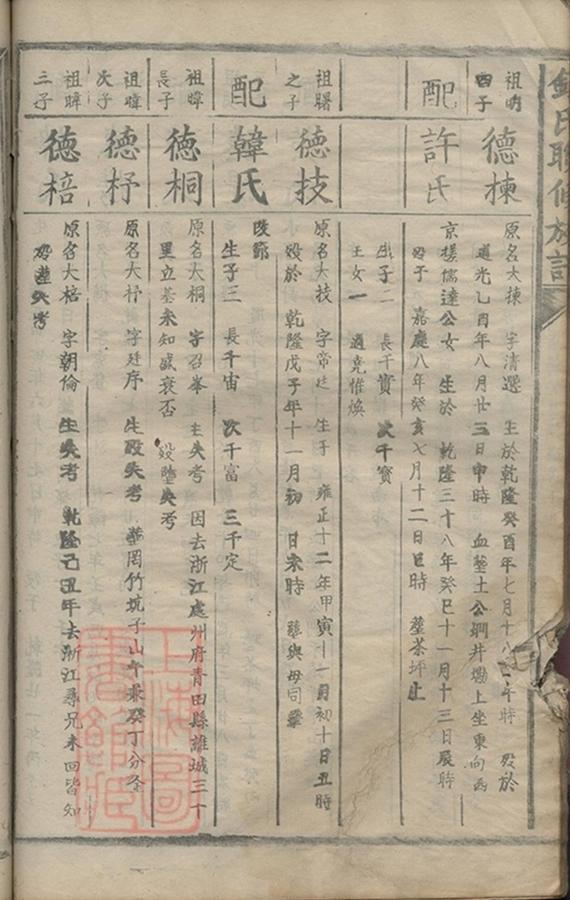 氏聯修族譜
祖明四子
德棟
原名大棟 字清選 生於乾隆癸酉年七月十八 午時 歿於
道光乙酉年八月廿三日申時 血塟土公 井塝上坐東向西
配
許氏
京樣儒達公女 生於 乾隆三十八年癸巳十一月十三日辰時
歿于 嘉慶八年癸亥七月十二日巳時 塟茶坪止
生子二 長千實 次千寶
王女一 適 惟煥
祖曙之子
德技
原名大技 字帝 生于 雍正十二年甲寅十一月初十日丑時
歿於 乾隆戊子年十一月初 日未時 塟與母同塋
配
韓氏
改節
生子三 長千宙 次千富 三千定
祖暐長子
德桐
原名大桐 字召峯 生失考 因去浙江處州府青田縣 城三十
里立基未知盛衰否 歿塟失考
祖暐次子
德杼
原名大杼 字廷序 生歿失考 塟岡竹坑子山午兼癸丁分金
祖暐三子
德棓
原名大棓 字朝倫 生失考 乾隆己丑年去浙江尋兄未回皆知
歿塟失考
上海圖書館藏